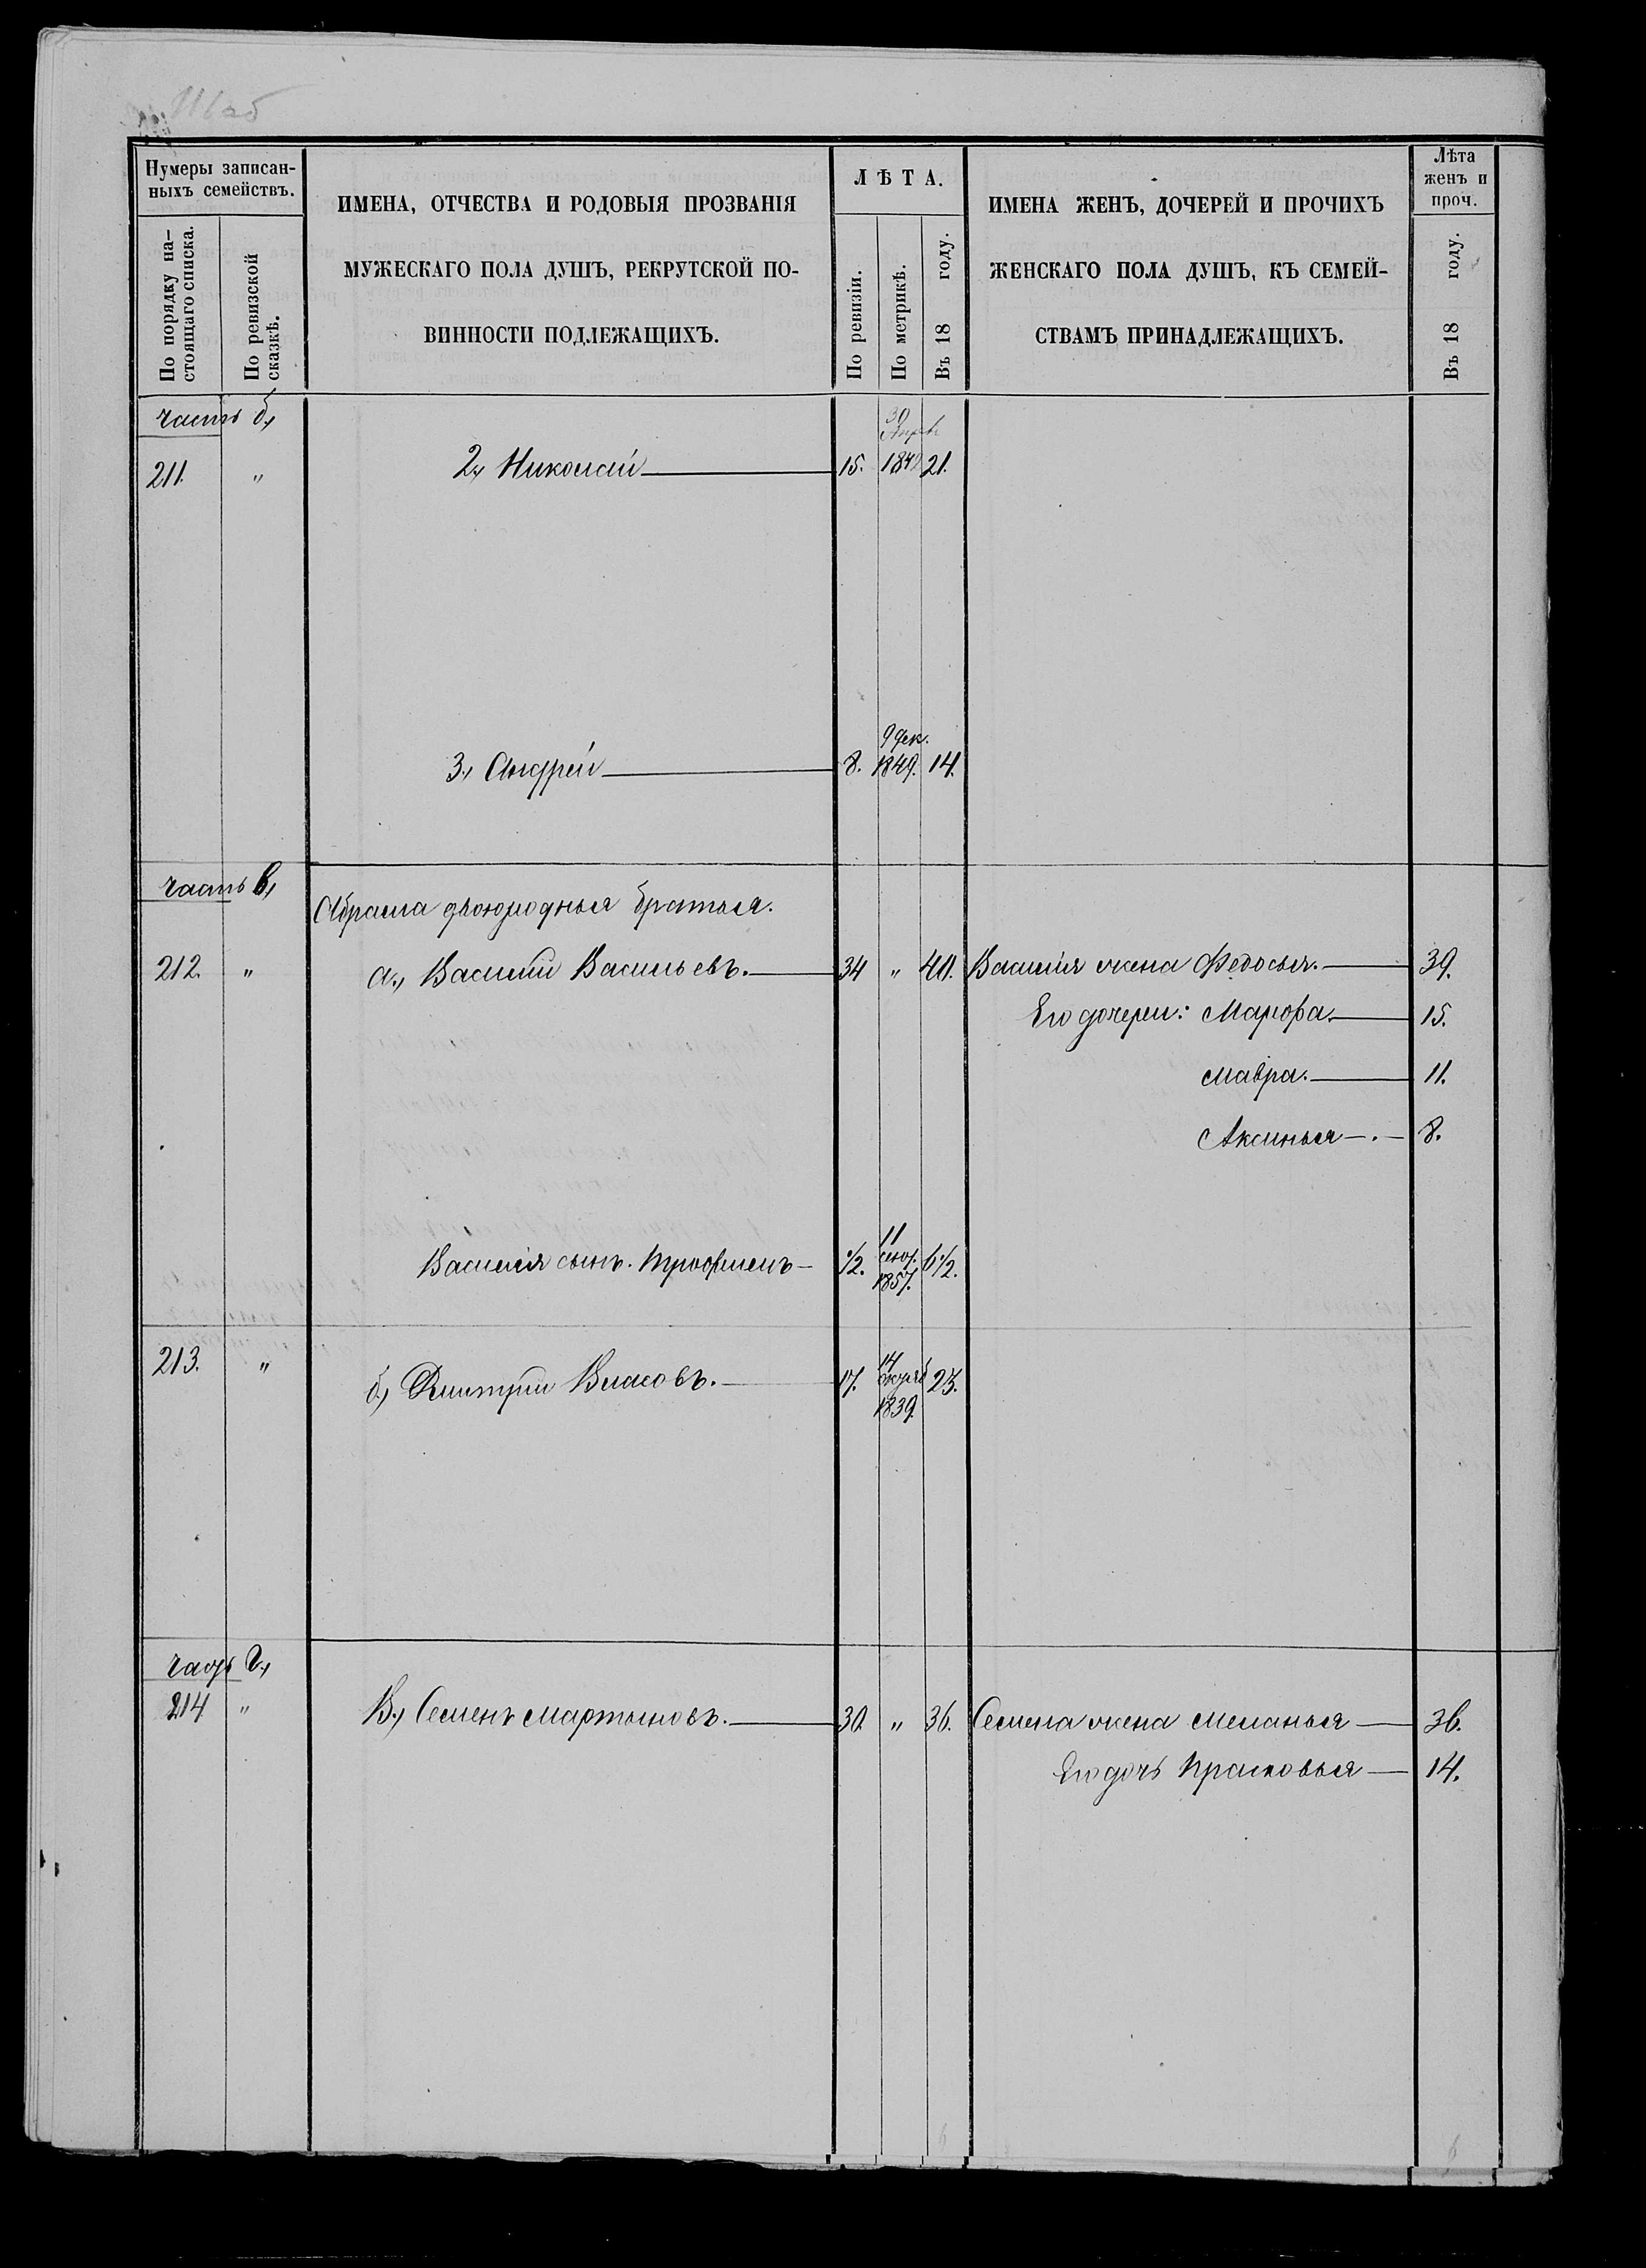 Нумеры записан-
ныхъ семействъ.
По порядку на-
стоящаго списка.
По ревизской
сказкѣ.
ИМЕНА, ОТЧЕСТВА И РОДОВЫЯ ПРОЗВАНІЯ
МУЖЕСКАГО ПОЛА ДУШЪ, РЕКРУТСКОЙ ПО-
ВИННОСТИ ПОДЛЕЖАЩИХЪ.
ЛѢТА.
По ревизіи.
По метрикѣ.
Въ 18 году.
ИМЕНА ЖЕНЪ, ДОЧЕРЕЙ И ПРОЧИХЪ
ЖЕНСКАГО ПОЛА ДУШЪ, КЪ СЕМЕЙ-
СТВАМЪ ПРИНАДЛЕЖАЩИХЪ.
Лѣта
женъ и
проч.
Въ 18 году.
часть б,
30
211. " 2, Николай 15. 21.
9 дек.
3, Андрей 8. 1849. 14.
часть в,
Абрама двоюродныя братья.
212. " а, Василий Васильевъ. 34 " 40. Василія жена Федосья. 39.
Его дочери: Марфа. 15.
Мавра. 11.
Аксинья. 8.
11
Василія сынъ Трофимъ 1/2. 1857. 6 1/2.
14
213. " б, Дмитрий Власовъ. 17. 1839. 23.
часть г,
214 " В, Семенъ Мартыновъ. 30. " 36. Семена жена Меланья 36.
Его дочь Прасковья 14.